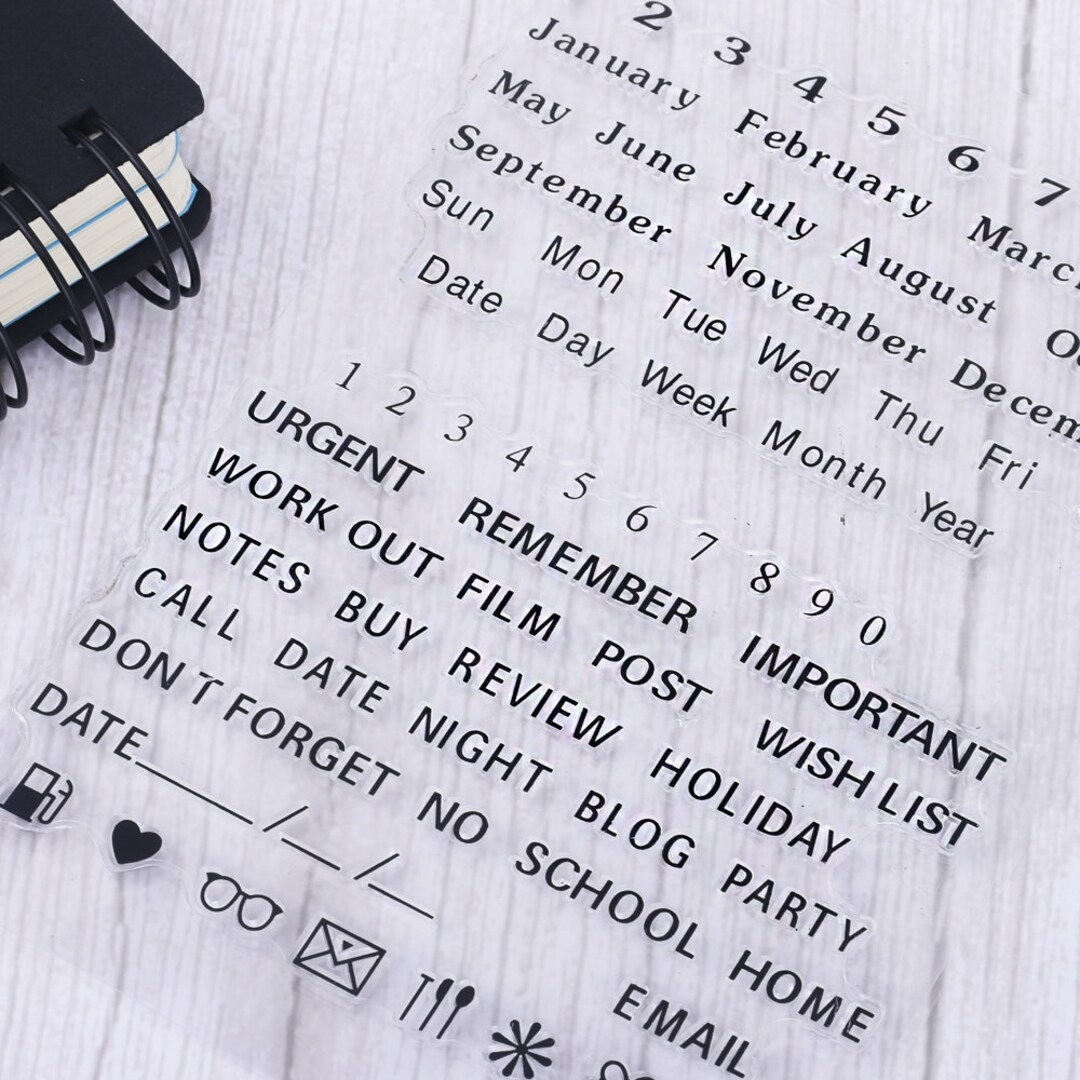 2 3 4 5 6 7
January February Marc
May June July August O
September November Decem
Sun Mon Tue Wed Thu Fri
Date Day Week Month Year
1 2 3 4 5 6 7 8 9 0
URGENT REMEMBER IMPORTANT
WORK OUT FILM POST WISH LIST
NOTES BUY REVIEW HOLIDAY
CALL DATE NIGHT BLOG PARTY
DON'T FORGET NO SCHOOL HOME
DATE____/__/__ EMAIL